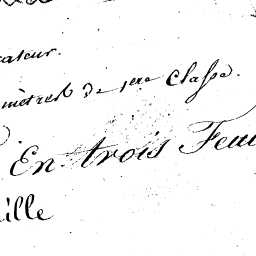 rateur.
mètres de 1ere Classe.
En trois Feui
ille